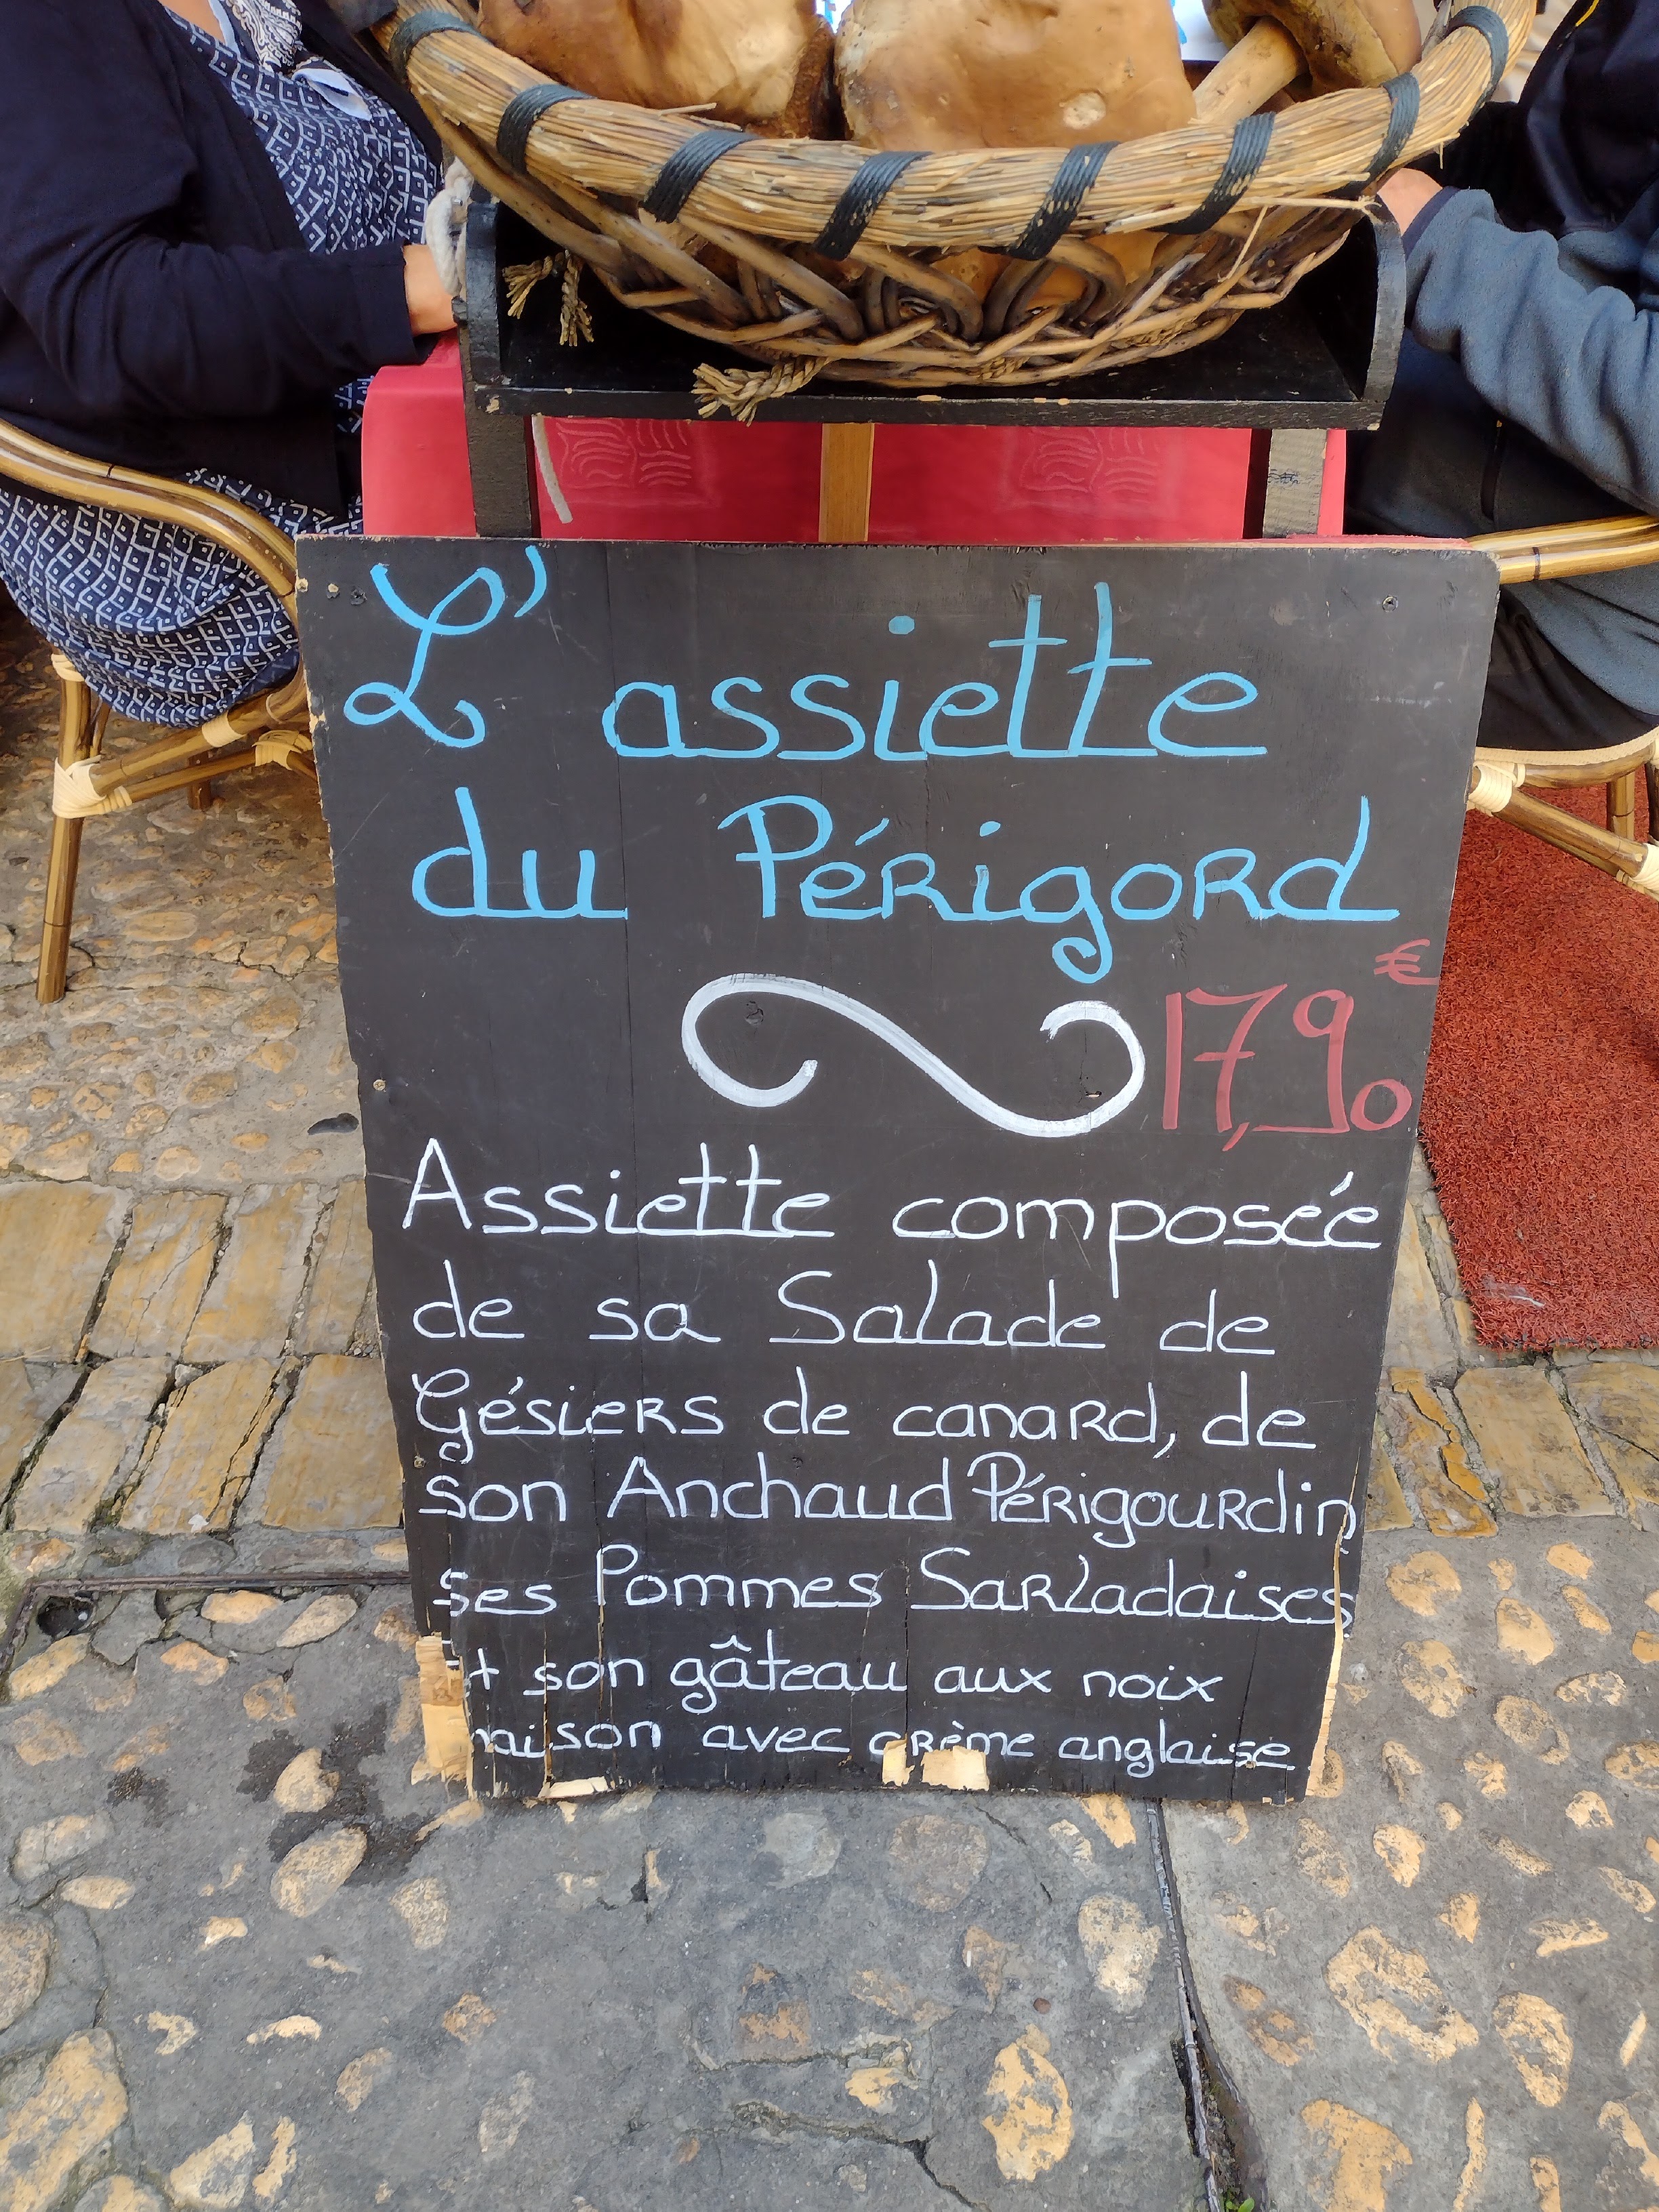 L'assiette
du Périgord
17,90 €
Assiette composée
de sa Salade de
Gésiers de canard, de
son Anchaud Périgourdin
ses Pommes Sarladaises
et son gâteau aux noix
maison avec crème anglaise